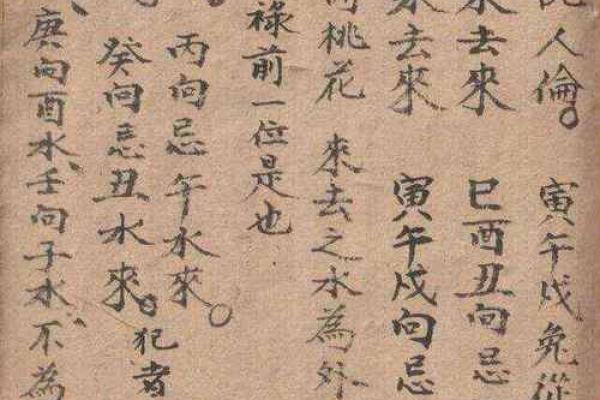 人倫。寅午戌兔從
水去來 巳酉丑向忌
水去來 寅午戌向忌
桃花 來去之水為外
祿前一位是也
丙向忌午水來。
癸向忌丑水來。犯者
庚向酉水、壬向子水、不為